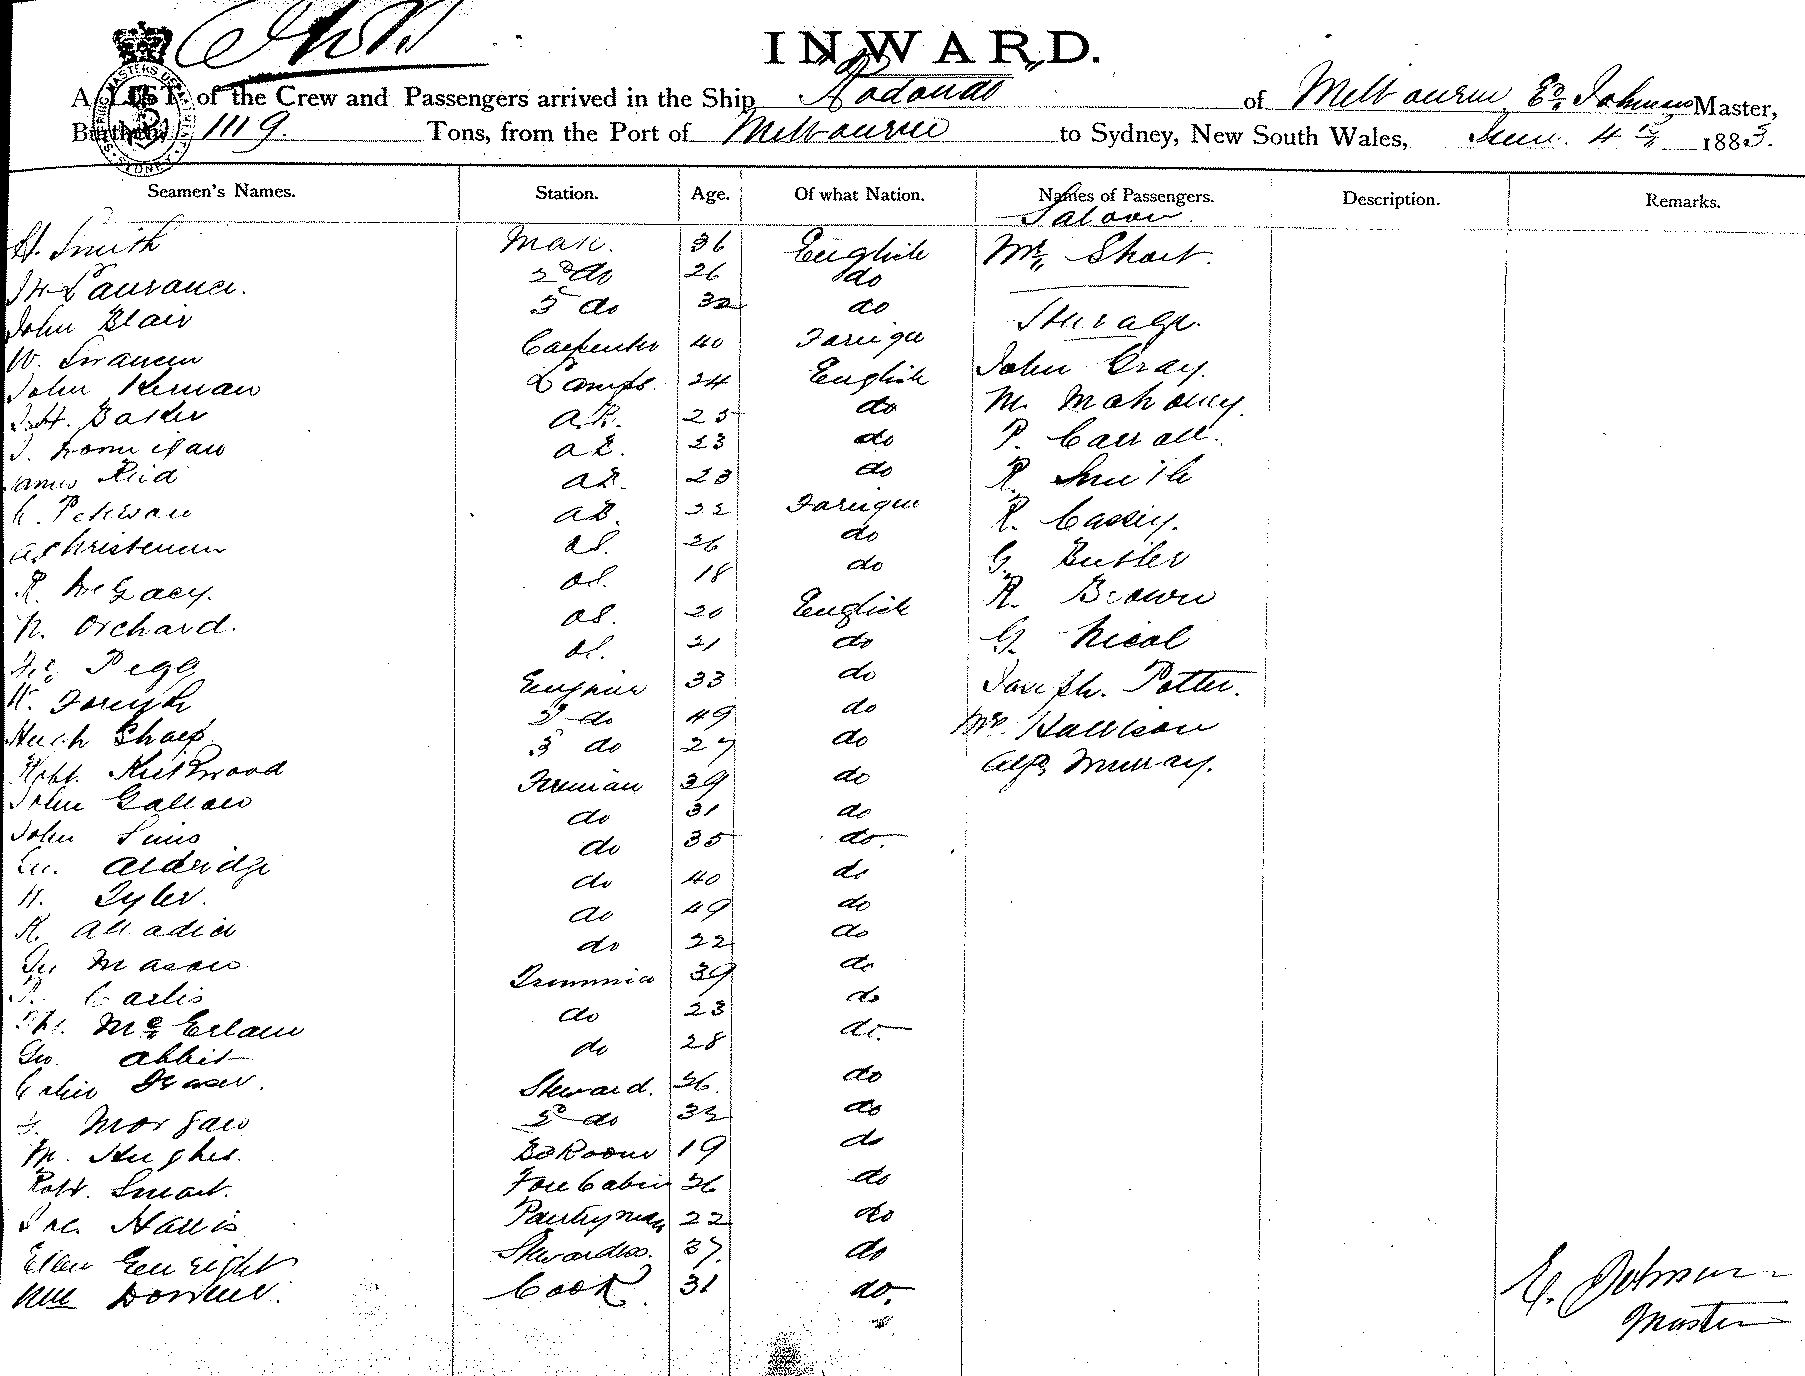 INWARD.
A LIST of the Crew and Passengers arrived in the Ship "Rodondo" of Melbourne, Ed. Johnson Master,
Burthen 1119. Tons, from the Port of Melbourne to Sydney, New South Wales, June 4th 1883.
Seamen's Names. Station. Age. Of what Nation. Names of Passengers. Description. Remarks.
Saloon.
H. Smith Mate. 36 English Mr. Short.
Laurance. 2d do 26 do
John Blair 3 do 32 do Steerage.
W. Carpenter 40 Foreign John Gray.
John Kernan Lamps. 24 English M. Mahoney.
Baker A.B. 25 do P. Carroll.
A.B. 23 do R. Smith
James Reid A.B. 23 do R. Casey.
A.B. 22 Foreign G. Butler
A. Christensen O.S. 26 do R. Brown
R. O.S. 18 do G. Nicol
N. Orchard. O.S. 20 English Joseph. Potter.
Pegg O.S. 21 do Mr. Harrison
W. Forsyth Engineer 33 do Alex Murray.
Hugh Sharp. 2d do 49 do
Robt. Kirkwood 3 do 27 do
John Fireman 39 do
John Sims do 31 do
Aldridge do 35 do.
H. Tyler. do 40 do
R. do 49 do
Geo Mason do 22 do
Trimmer 39 do
McErlain do 23 do
Geo. Abbit do 28 do.
Colin Fraser. Steward. 36. do
Morgan 2d do 32 do
M. Hughes. Ed Room 19 do
Robt. Smart. Fore Cabin 36 do
Harris Pantryman 22 do
Ellen Enright Stewardess. 37. do
Wm Cook. 31 do.
E. Johnson
Master